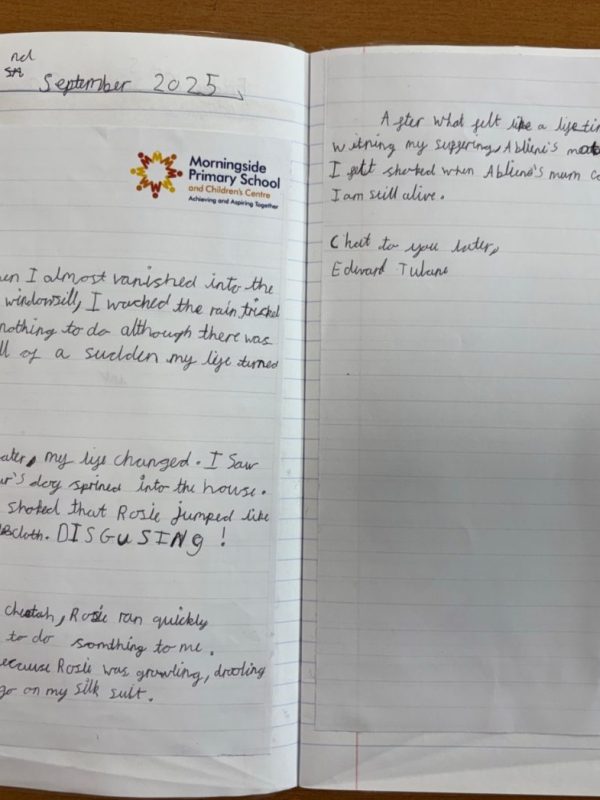 nd
September 2025
Morningside
Primary School
and Children's Centre
Achieving and Aspiring Together
I almost vanished into the
windowsill, I wached the rain trickel
nothing to do although there was
of a sudden my life turned
my life changed. I saw
dog sprined into the house.
shoked that Rosie jumped like
cloth. DISGUSING!
cheetah, Rosie ran quickly
to do somthing to me.
Rosie was growling, drooling
go on my silk suit.
After what felt like a life
witning my suffering, Abliene's
I felt shocked when Abliene's mum
I am still alive.
Chat to you later,
Edward Tulane